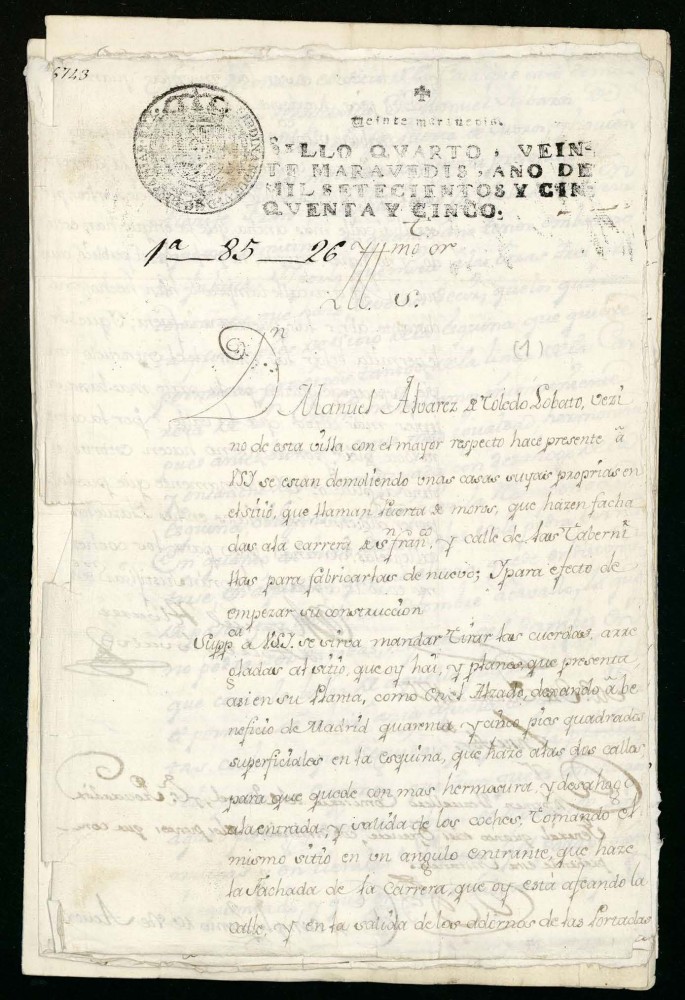 6743
Veinte maravedis.
SELLO QVARTO, VEIN-
TE MARAVEDIS, AÑO DE
MIL SETECIENTOS Y CIN-
QVENTA Y CINCO.
1ª 85 26 Yllmo or
S.
(1)
Dn
Manuel Alvarez de Toledo Lobato, vezi
no de esta villa con el mayor respecto hace presente â
VSI se estan demoliendo unas casas suyas proprias en
el sitio, que llaman Puerta de moros, que hazen facha
das ala carrera de Sn franco, y calle de las Taberni
llas para fabricarlas de nuevo; Ypara efecto de
empezar su construccion
Suppca a VSI. se sirva mandar tirar las cuerdas, arre
gladas al sitio, que oy hai, y planes, que presenta,
asi en su Planta, como en el Alzado, dexando â be
neficio de Madrid quarenta, y cinco pies quadrados
superficiales en la esquina, que haze alas dos calles
para que quede con mas hermosura, y desahogo
ala entrada, y salida de los coches, tomando el
mismo sitio en un angulo entrante, que haze
la fachada de la Carrera, que oy está afeando la
calle, y en la salida de los adornos de las Portadas